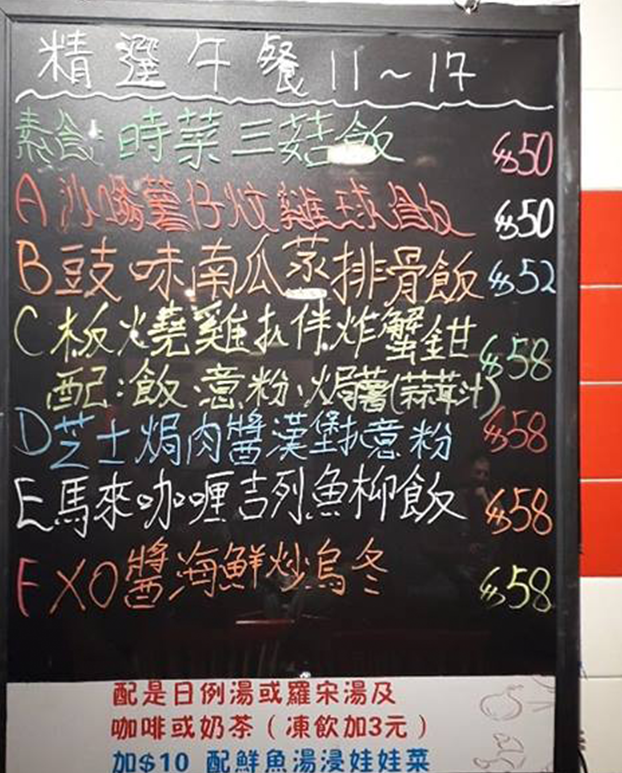 精選午餐 11~17
素食:時菜三菇飯 $50
A 沙嗲薯仔炆雞球飯 $50
B 豉味南瓜蒸排骨飯 $52
C 板燒雞扒伴炸蟹鉗 $58
配:飯、意粉、焗薯(蒜茸汁)
D 芝士焗肉醬漢堡扒意粉 $58
E 馬來咖喱吉列魚柳飯 $58
F XO醬海鮮炒烏冬 $58
配是日例湯或羅宋湯及
咖啡或奶茶(凍飲加3元)
加$10 配鮮魚湯浸娃娃菜